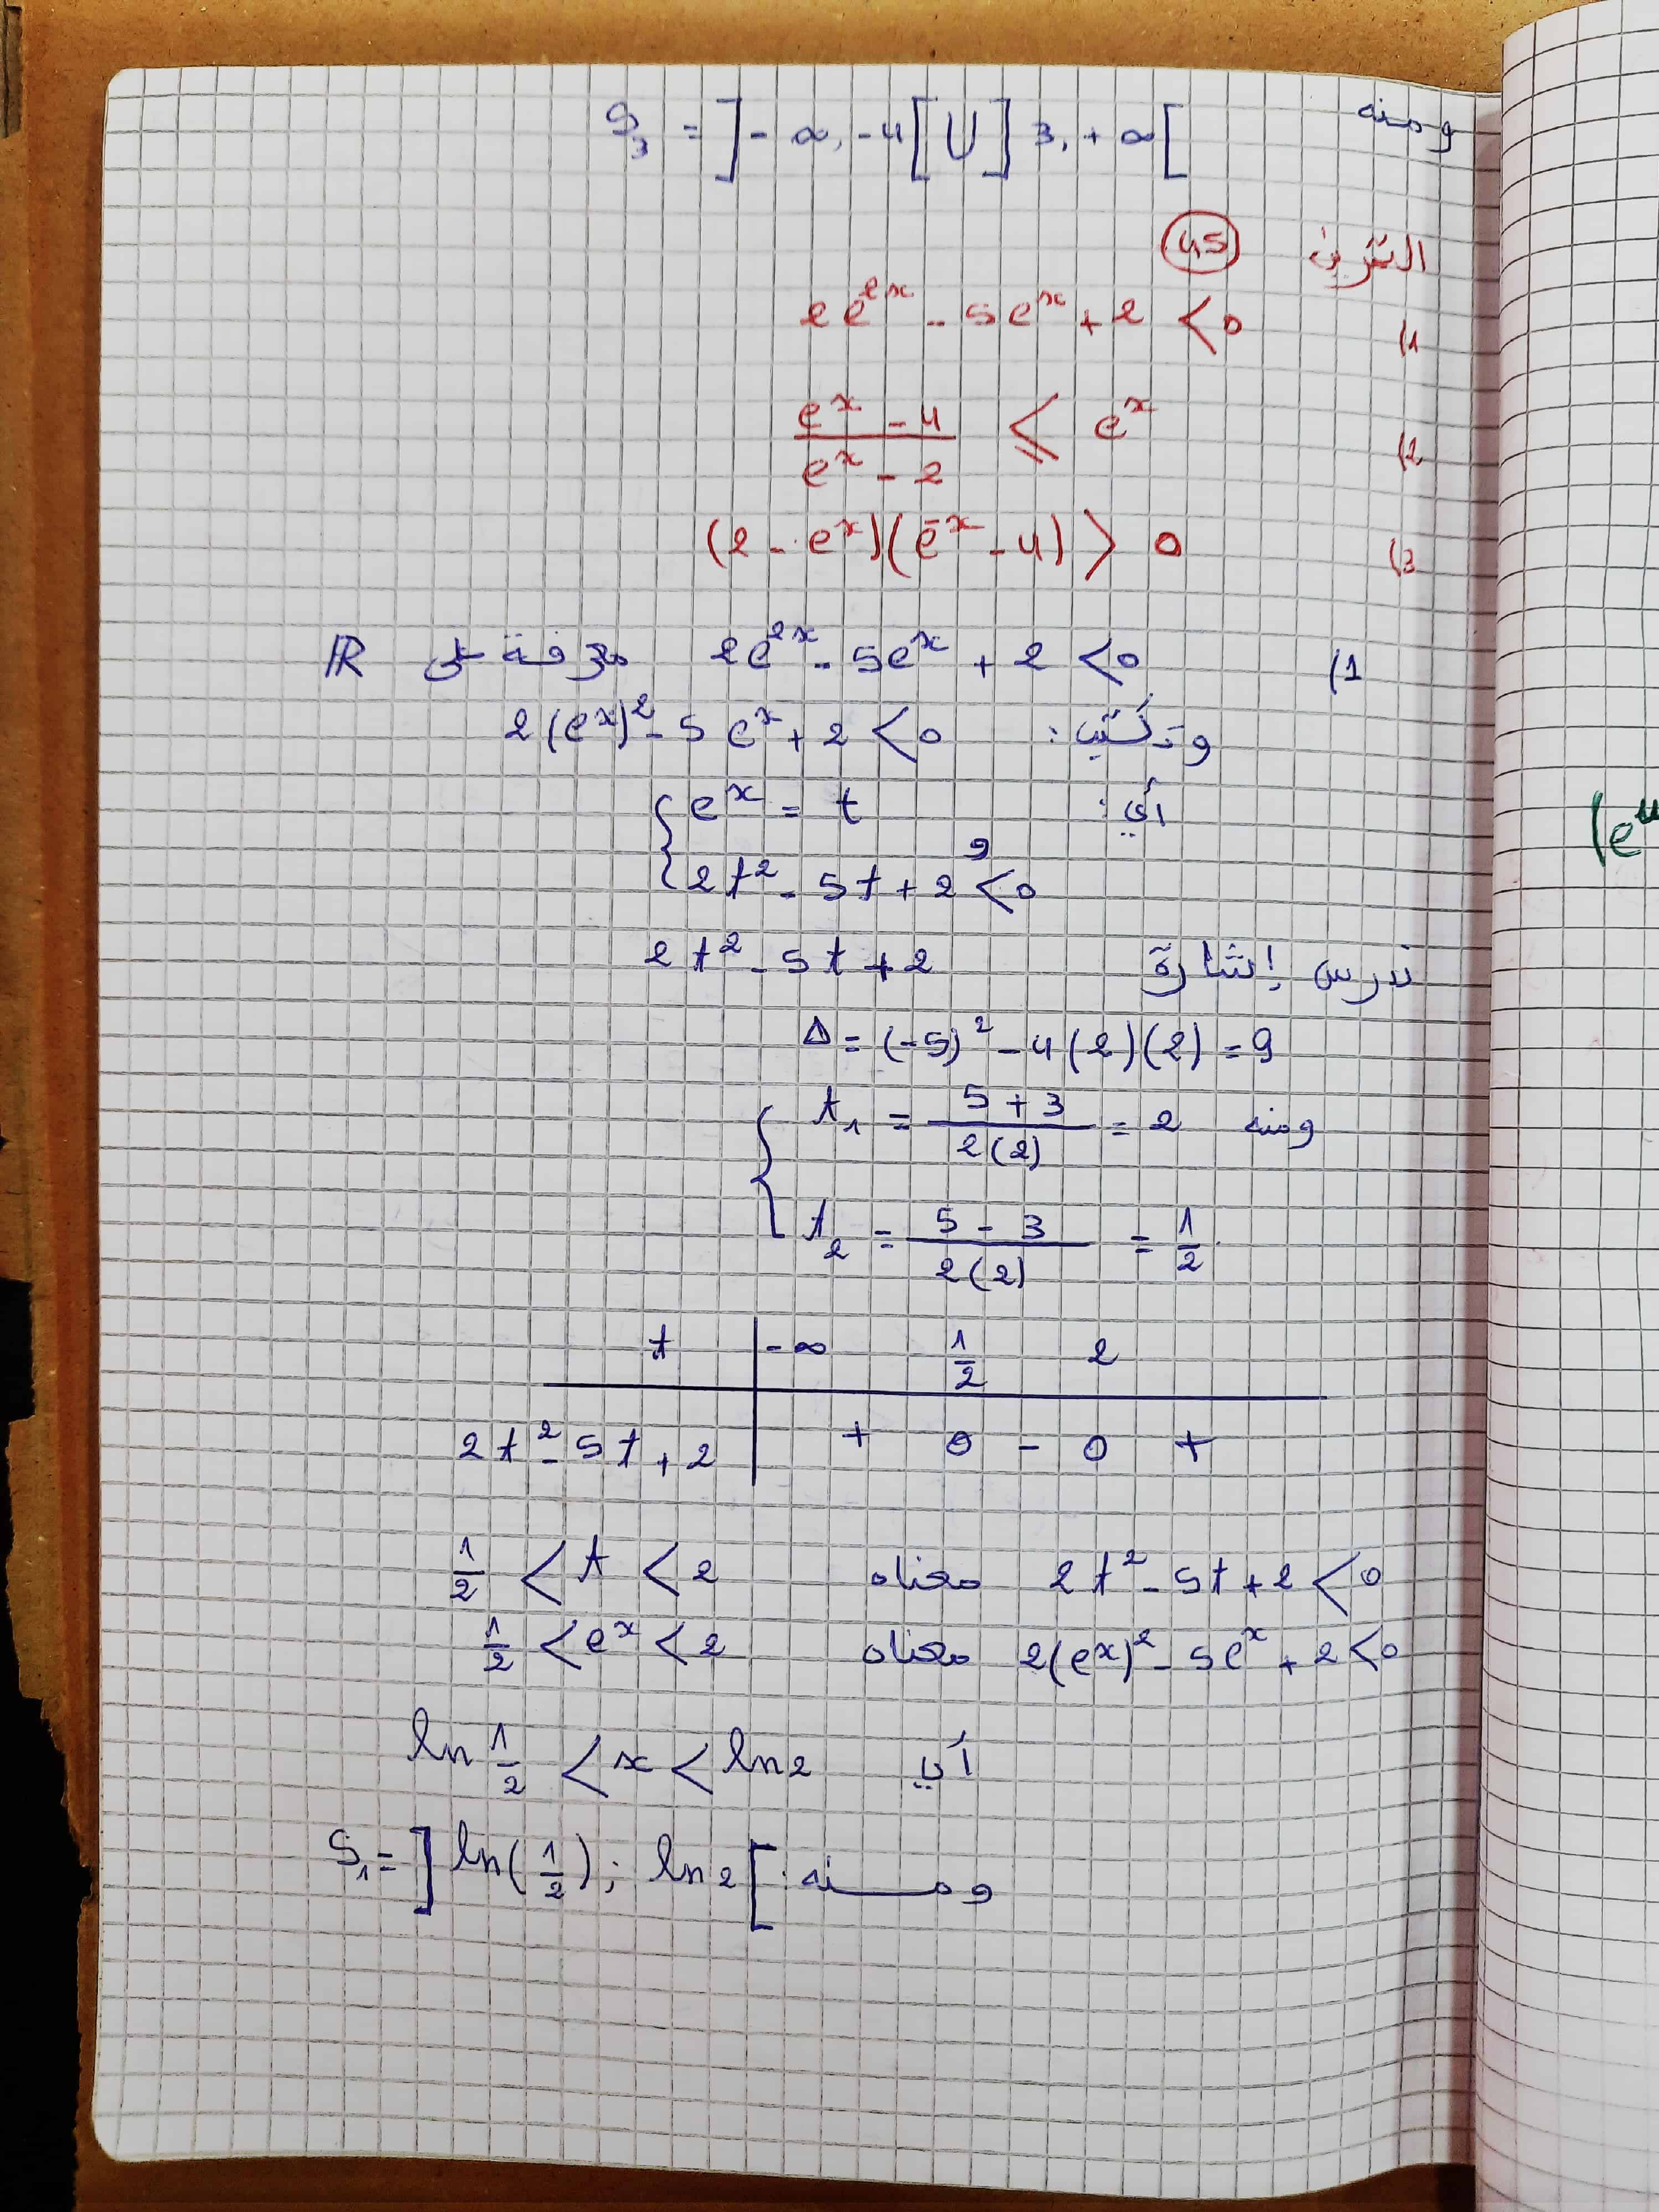 ومنه S₃ = ]-∞, -4[ U ]3, +∞[
التمرين 45
1) 2e^{2x} - 5e^x + 2 < 0
2) (e^x - 4)/(e^x - 2) ≤ e^x
3) (2 - e^x)(e^{-x} - 4) > 0
1) 2e^{2x} - 5e^x + 2 < 0 معرفة على ℝ
وتكتب: 2(e^x)² - 5e^x + 2 < 0
أي: { e^x = t
و
2t² - 5t + 2 < 0
ندرس إشارة 2t² - 5t + 2
Δ = (-5)² - 4(2)(2) = 9
ومنه { t₁ = (5 + 3)/(2(2)) = 2
t₂ = (5 - 3)/(2(2)) = 1/2
t | -∞ 1/2 2
2t² - 5t + 2 | + 0 - 0 +
2t² - 5t + 2 < 0 معناه 1/2 < t < 2
2(e^x)² - 5e^x + 2 < 0 معناه 1/2 < e^x < 2
أي ln 1/2 < x < ln 2
ومنه: S₁ = ]ln(1/2); ln 2[